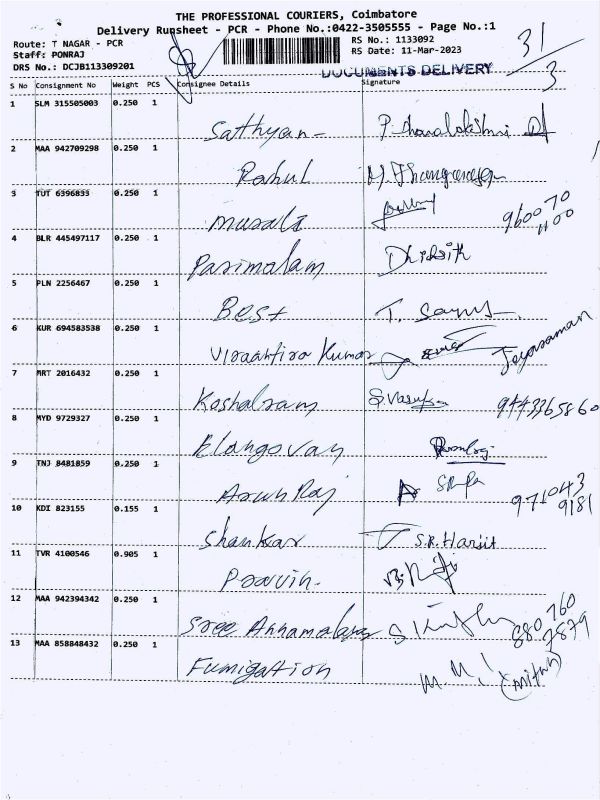 THE PROFESSIONAL COURIERS, Coimbatore
Delivery Runsheet - PCR - Phone No.:0422-3505555 - Page No.:1
Route: T NAGAR - PCR
Staff: PONRAJ
DRS No.: DCJB113309201
RS No.: 1133092
RS Date: 11-Mar-2023
31/3
DOCUMENTS DELIVERY
S No Consignment No Weight PCS Consignee Details Signature
1 SLM 315505003 0.250 1
Sathyan-
2 MAA 942709298 0.250 1
Rahul
3 TUT 6396833 0.250 1
Murali 960070
1100
4 BLR 445497117 0.250 1
Parimalam
5 PLN 2256467 0.250 1
Best
6 KUR 694583538 0.250 1
Kumar Jeyaraman
7 MRT 2016432 0.250 1
Koshalram 9443365860
8 MYD 9729327 0.250 1
Elangovan
9 TNJ 8481859 0.250 1
Arun Raj 971043
9181
10 KDI 823155 0.155 1
Shankar S.R. Harjit
11 TVR 4100546 0.905 1
Pravin-
12 MAA 942394342 0.250 1
Sree Annamalai 880760
7879
13 MAA 858848432 0.250 1
Fumigation M.M.